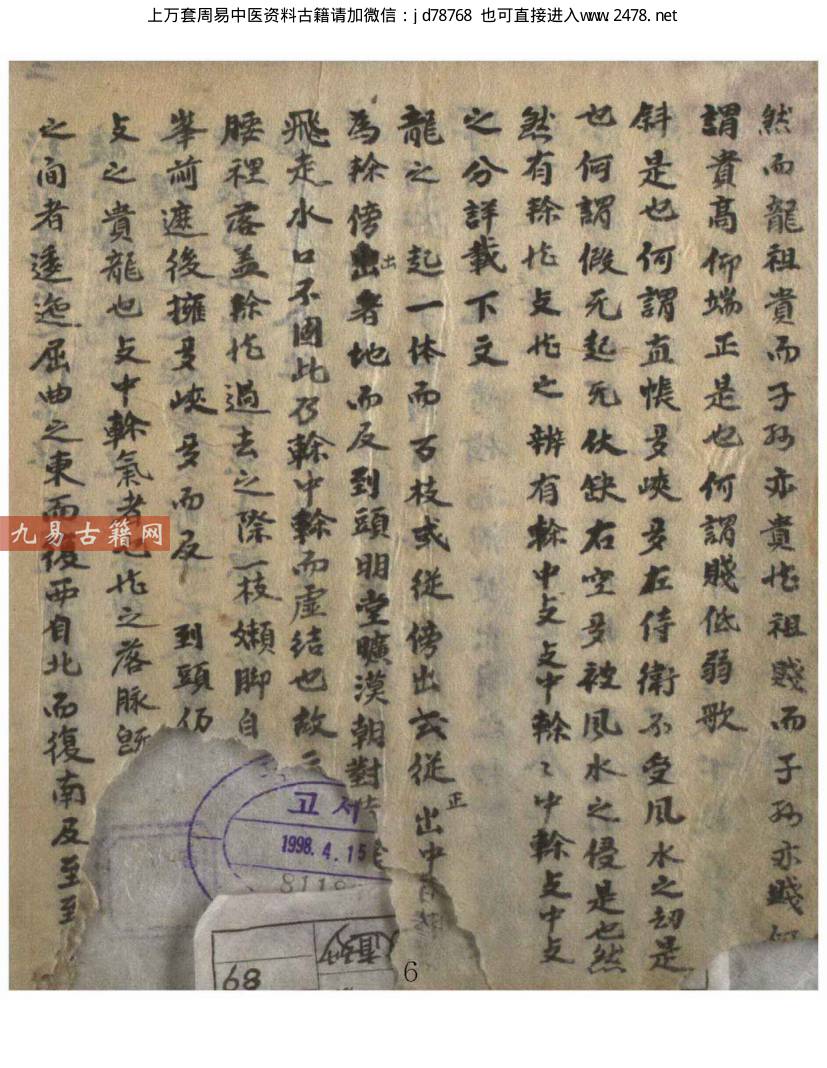 上万套周易中医资料古籍请加微信：jd78768 也可直接进入www.2478.net
然而龍祖貴而子孫亦貴枝祖賤而子孫亦賤何
謂貴高仰端正是也何謂賤低弱歌
斜是也何謂直帳多峽多左侍衛不受風水之刼是
也何謂假无起无伏缺右空多被風水之侵是也然
然有幹枝支枝之辨有幹中支支中幹〻中幹支中支
之分詳載下文
龍之 起一体而百枝或從傍出或從正出中
為幹傍出者地而反到頭明堂曠漠朝對
飛走水口不固此乃幹中幹而虛結也故云
腰裡落盖幹枝過去之際一枝嬾脚自
峯前遮後擁多峽多而反 到頭仍
支之貴龍也支中幹氣者 枝之落脉
之间者逶迤屈曲之東而復西自北而復南及至至
九易古籍网
고서
1998.4.15
8119
68
6